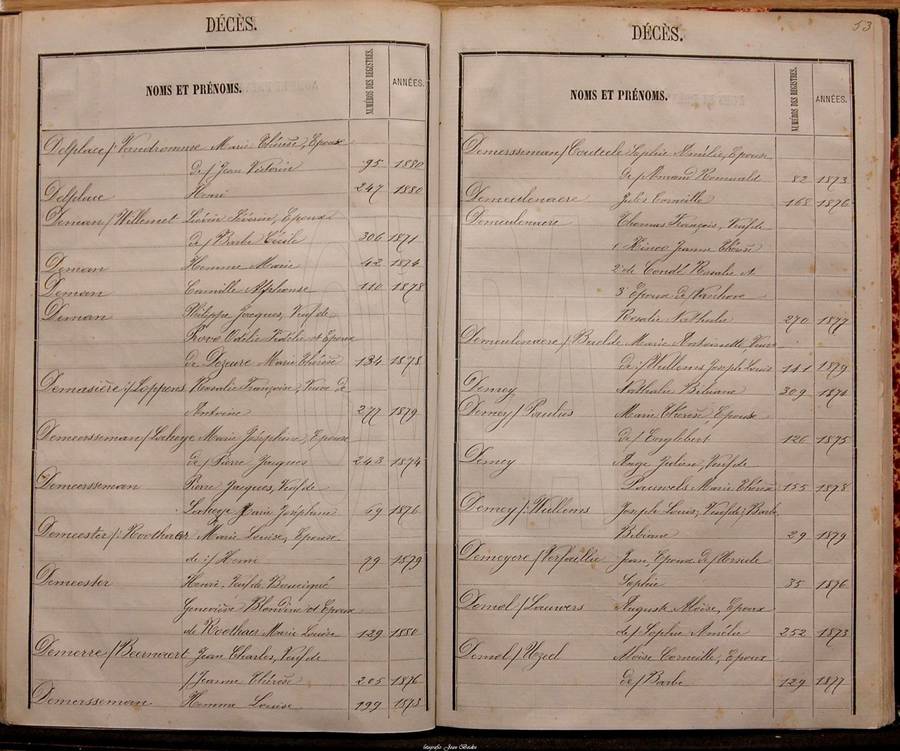 DÉCÈS.
NOMS ET PRÉNOMS. NUMÉROS DES REGISTRES. ANNÉES.
Delplace / Vandromme Marie Thérèse, Epouse
de / Jean Victorin 95 1880
Delplace Henri 247 1880
Deman / Willemet Liévin Epoux
de / Barbe Cécile 306 1871
Deman Homme Marie 42 1874
Deman Camille Alphonse 110 1878
Deman Philippe Jacques, Veuf de
Rosalie et Epoux
de Dezure Marie Thérèse 134 1878
Demasière / Loppens Rosalie Françoise, Veuve de
Antoine 277 1879
Demeersseman / Laheye Marie Joséphine, Epouse
de / Pierre Jacques 243 1874
Demeersseman Pierre Jacques, Veuf de
Laheye Marie Joséphine 19 1876
Demeester / Roothaer Marie Louise, Epouse
de / Henri 79 1879
Demeester Henri, Veuf de
Geneviève Blondine et Epoux
de Roothaer Marie Louise 129 1880
Demerre / Beernaert Jean Charles, Veuf de
/ Jeanne Thérèse 205 1876
Demersseman Homme Louise 199 1873
53
DÉCÈS.
NOMS ET PRÉNOMS. NUMÉROS DES REGISTRES. ANNÉES.
Demersseman / Sophie Amélie, Epouse
de / Amand Romuald 82 1873
Demeulenaere Jules Corneille 168 1876
Demeulenaere Thomas François, Veuf de
1 Jeanne Thérèse
2 de Condé Rosalie et
3 Epoux de / Vanhove
Rosalie Nathalie 270 1877
Demeulenaere / Marie Antoinette, Veuve
de / Willems Joseph Louis 141 1879
Demey Nathalie Bibiane 309 1871
Demey / Paulus Marie Thérèse, Epouse
de / Englebert 126 1875
Demey Ange Julien, Veuf de
Pauwels Marie Thérèse 155 1878
Demey / Willems Joseph Louis, Veuf de / Barbe
Bibiane 29 1879
Demeyere / Verfaillie Jean, Epoux de / Ursule
Sophie 35 1876
Demol / Lauwers Auguste Aloïse, Epoux
de / Sophie Amélie 252 1873
Demol / Aloïse Corneille, Epoux
de / Barbe 129 1877
fotografie Jean Baeke